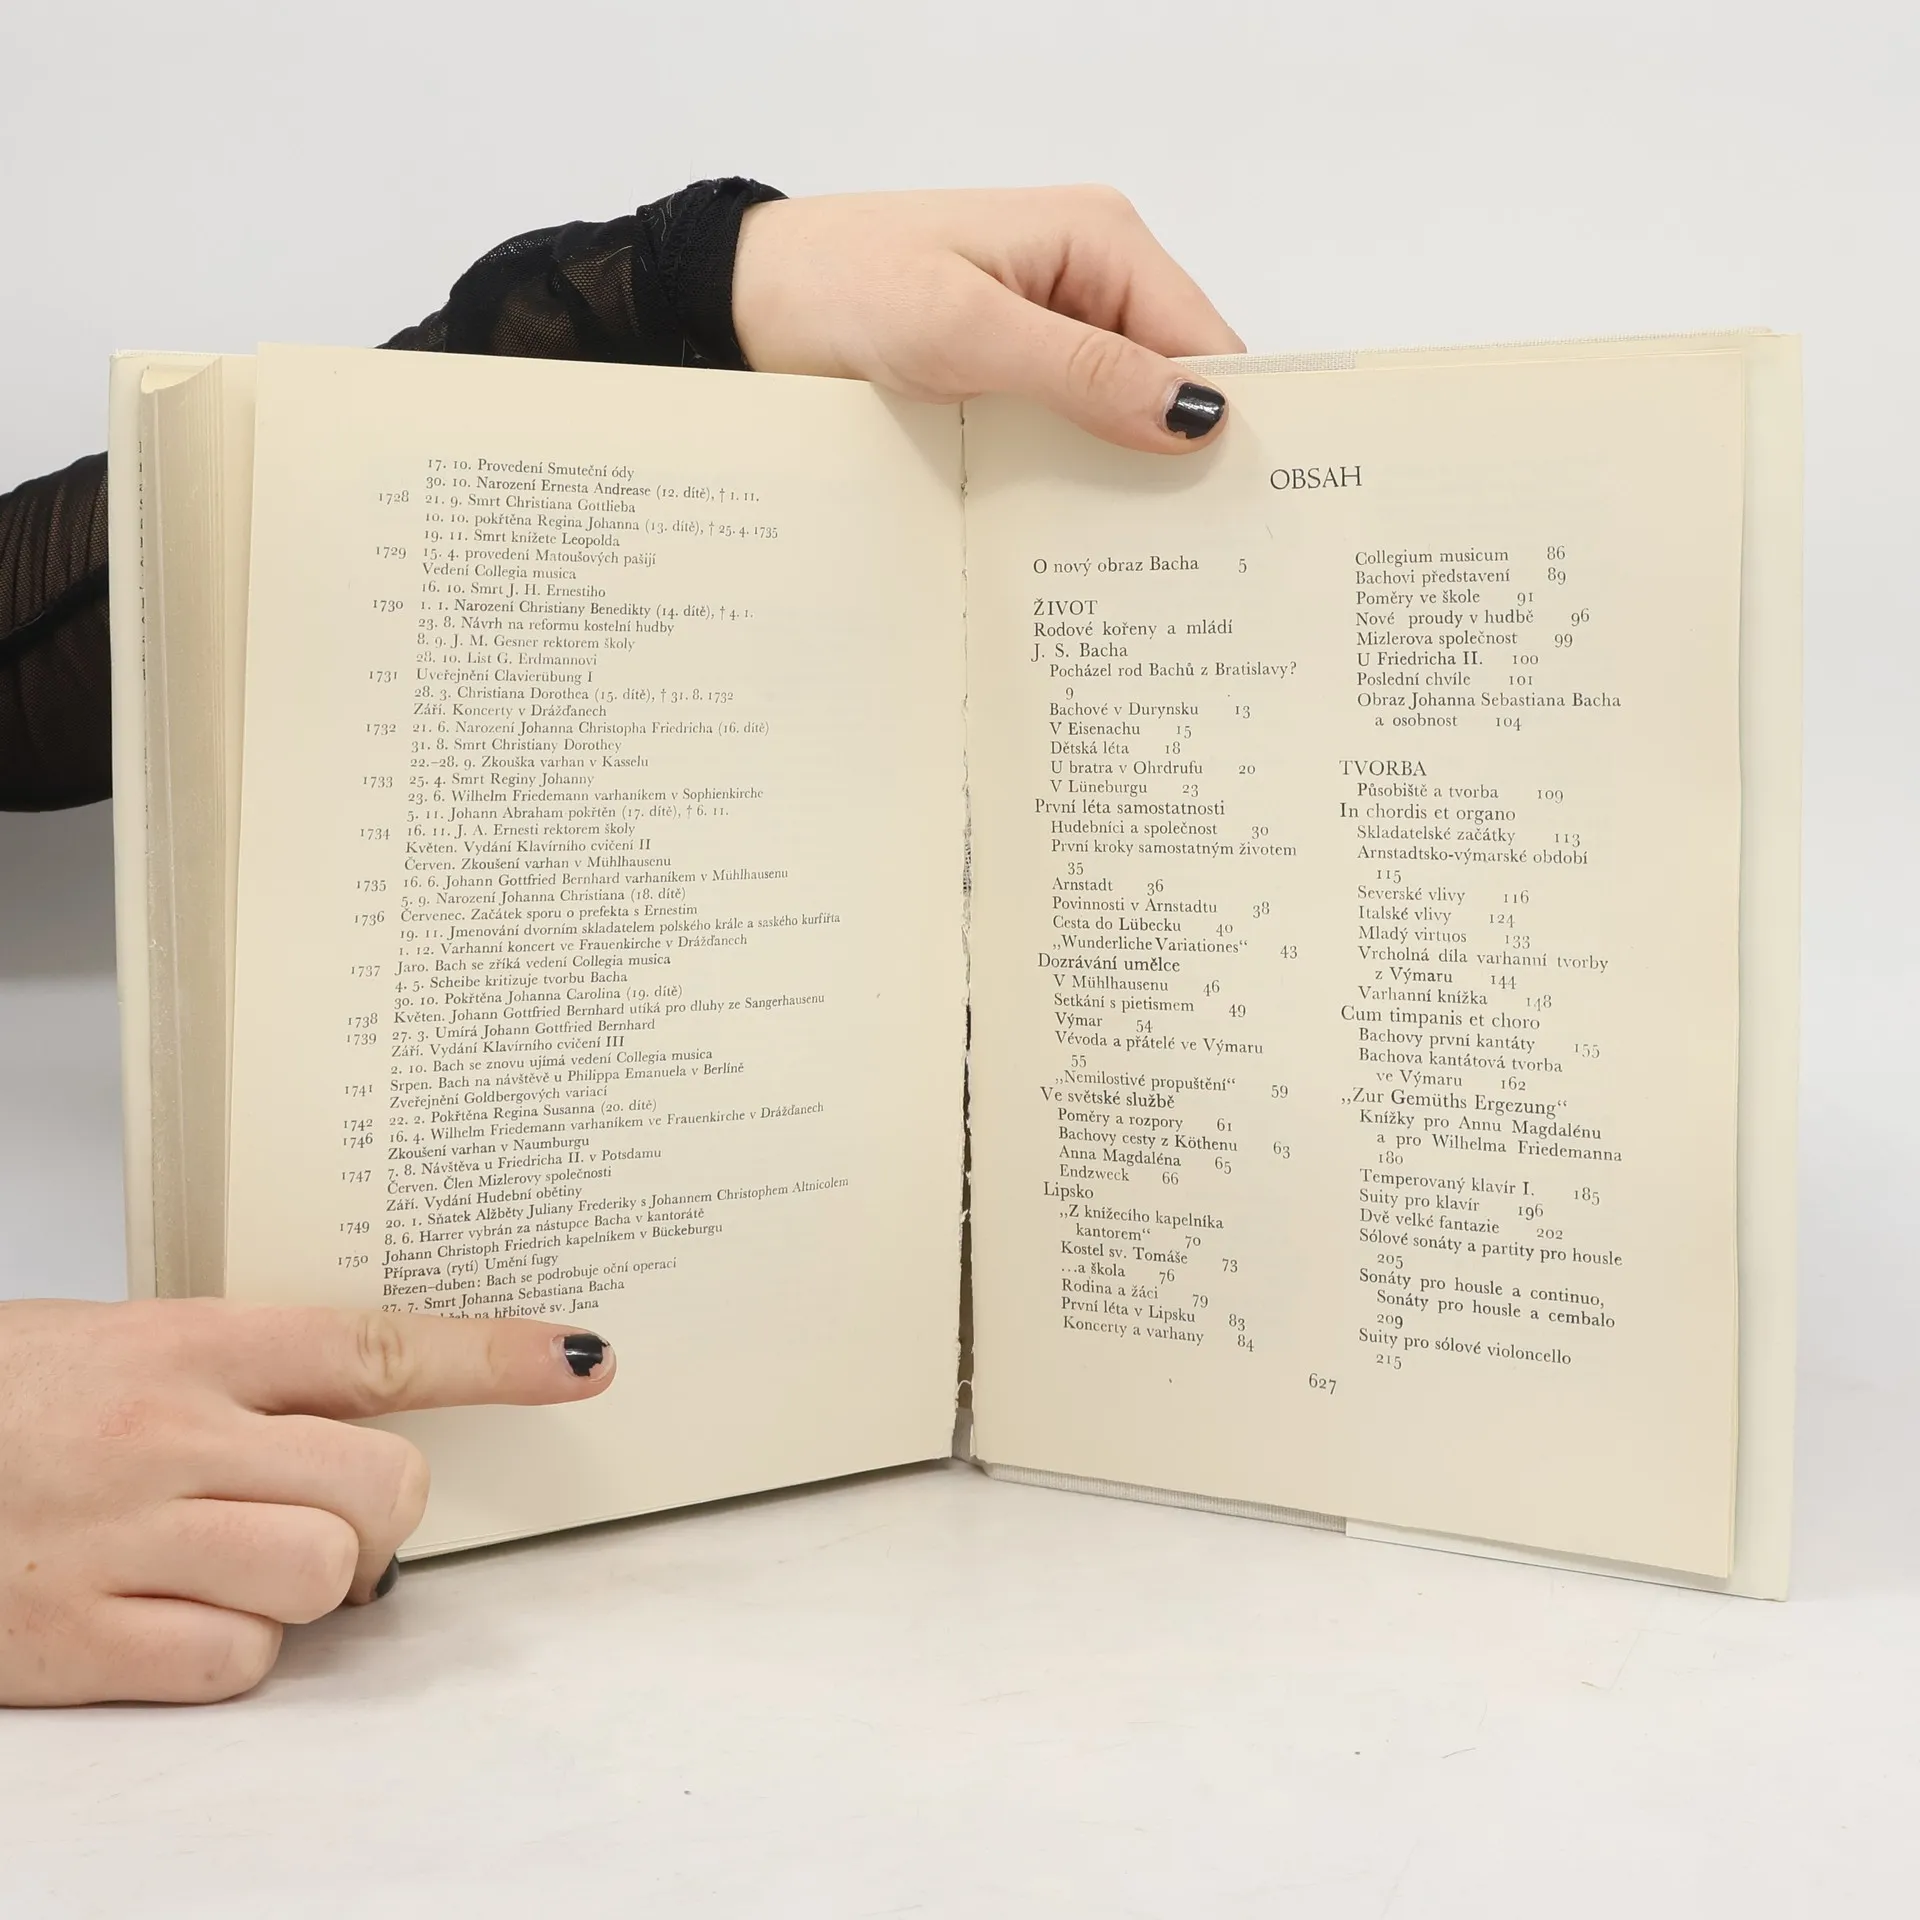 17. 10. Provedení Smuteční ódy
30. 10. Narození Ernesta Andrease (12. dítě), † 1. 11.
1728 21. 9. Smrt Christiana Gottlieba
10. 10. pokřtěna Regina Johanna (13. dítě), † 25. 4. 1735
19. 11. Smrt knížete Leopolda
1729 15. 4. provedení Matoušových pašijí
Vedení Collegia musica
16. 10. Smrt J. H. Ernestiho
1730 1. 1. Narození Christiany Benedikty (14. dítě), † 4. 1.
23. 8. Návrh na reformu kostelní hudby
8. 9. J. M. Gesner rektorem školy
28. 10. List G. Erdmannovi
1731 Uveřejnění Clavierübung I
28. 3. Christiana Dorothea (15. dítě), † 31. 8. 1732
Září. Koncerty v Drážďanech
1732 21. 6. Narození Johanna Christopha Friedricha (16. dítě)
31. 8. Smrt Christiany Dorothey
22.–28. 9. Zkouška varhan v Kasselu
1733 25. 4. Smrt Reginy Johanny
23. 6. Wilhelm Friedemann varhaníkem v Sophienkirche
5. 11. Johann Abraham pokřtěn (17. dítě), † 6. 11.
1734 16. 11. J. A. Ernesti rektorem školy
Květen. Vydání Klavírního cvičení II
Červen. Zkoušení varhan v Mühlhausenu
1735 16. 6. Johann Gottfried Bernhard varhaníkem v Mühlhausenu
5. 9. Narození Johanna Christiana (18. dítě)
1736 Červenec. Začátek sporu o prefekta s Ernestim
19. 11. Jmenování dvorním skladatelem polského krále a saského kurfiřta
1. 12. Varhanní koncert ve Frauenkirche v Drážďanech
1737 Jaro. Bach se zříká vedení Collegia musica
4. 5. Scheibe kritizuje tvorbu Bacha
30. 10. Pokřtěna Johanna Carolina (19. dítě)
1738 Květen. Johann Gottfried Bernhard utíká pro dluhy ze Sangerhausenu
1739 27. 3. Umírá Johann Gottfried Bernhard
Září. Vydání Klavírního cvičení III
2. 10. Bach se znovu ujímá vedení Collegia musica
1741 Srpen. Bach na návštěvě u Philippa Emanuela v Berlíně
Zveřejnění Goldbergových variací
1742 22. 2. Pokřtěna Regina Susanna (20. dítě)
1746 16. 4. Wilhelm Friedemann varhaníkem ve Frauenkirche v Drážďanech
Zkoušení varhan v Naumburgu
1747 7. 8. Návštěva u Friedricha II. v Potsdamu
Červen. Člen Mizlerovy společnosti
Září. Vydání Hudební obětiny
1749 20. 1. Sňatek Alžběty Juliany Frederiky s Johannem Christophem Altnicolem
8. 6. Harrer vybrán za nástupce Bacha v kantorátě
1750 Johann Christoph Friedrich kapelníkem v Bückeburgu
Příprava (rytí) Umění fugy
Březen–duben: Bach se podrobuje oční operaci
27. 7. Smrt Johanna Sebastiana Bacha
na hřbitově sv. Jana
OBSAH
O nový obraz Bacha 5
ŽIVOT
Rodové kořeny a mládí
J. S. Bacha
Pocházel rod Bachů z Bratislavy?
9
Bachové v Durynsku 13
V Eisenachu 15
Dětská léta 18
U bratra v Ohrdrufu 20
V Lüneburgu 23
První léta samostatnosti
Hudebníci a společnost 30
První kroky samostatným životem
35
Arnstadt 36
Povinnosti v Arnstadtu 38
Cesta do Lübecku 40
„Wunderliche Variationes“ 43
Dozrávání umělce
V Mühlhausenu 46
Setkání s pietismem 49
Výmar 54
Vévoda a přátelé ve Výmaru
55
„Nemilostivé propuštění“ 59
Ve světské službě
Poměry a rozpory 61
Bachovy cesty z Köthenu 63
Anna Magdaléna 65
Endzweck 66
Lipsko
„Z knížecího kapelníka
kantorem“ 70
Kostel sv. Tomáše 73
...a škola 76
Rodina a žáci 79
První léta v Lipsku 83
Koncerty a varhany 84
Collegium musicum 86
Bachovi představení 89
Poměry ve škole 91
Nové proudy v hudbě 96
Mizlerova společnost 99
U Friedricha II. 100
Poslední chvíle 101
Obraz Johanna Sebastiana Bacha
a osobnost 104
TVORBA
Působiště a tvorba 109
In chordis et organo
Skladatelské začátky 113
Arnstadtsko-výmarské období
115
Severské vlivy 116
Italské vlivy 124
Mladý virtuos 133
Vrcholná díla varhanní tvorby
z Výmaru 144
Varhanní knížka 148
Cum timpanis et choro
Bachovy první kantáty 155
Bachova kantátová tvorba
ve Výmaru 162
„Zur Gemüths Ergezung“
Knížky pro Annu Magdalénu
a pro Wilhelma Friedemanna
180
Temperovaný klavír I. 185
Suity pro klavír 196
Dvě velké fantazie 202
Sólové sonáty a partity pro housle
205
Sonáty pro housle a continuo,
Sonáty pro housle a cembalo
209
Suity pro sólové violoncello
215
627